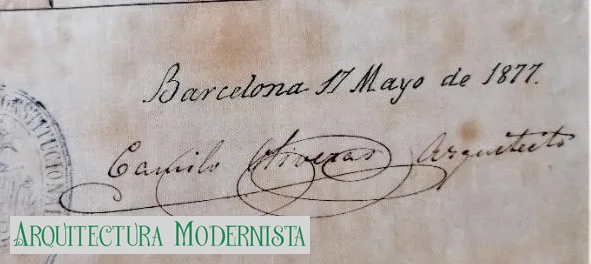 Barcelona 17 Mayo de 1877.
Camilo Oliveras Arquitecto
ARQUITECTURA MODERNISTA